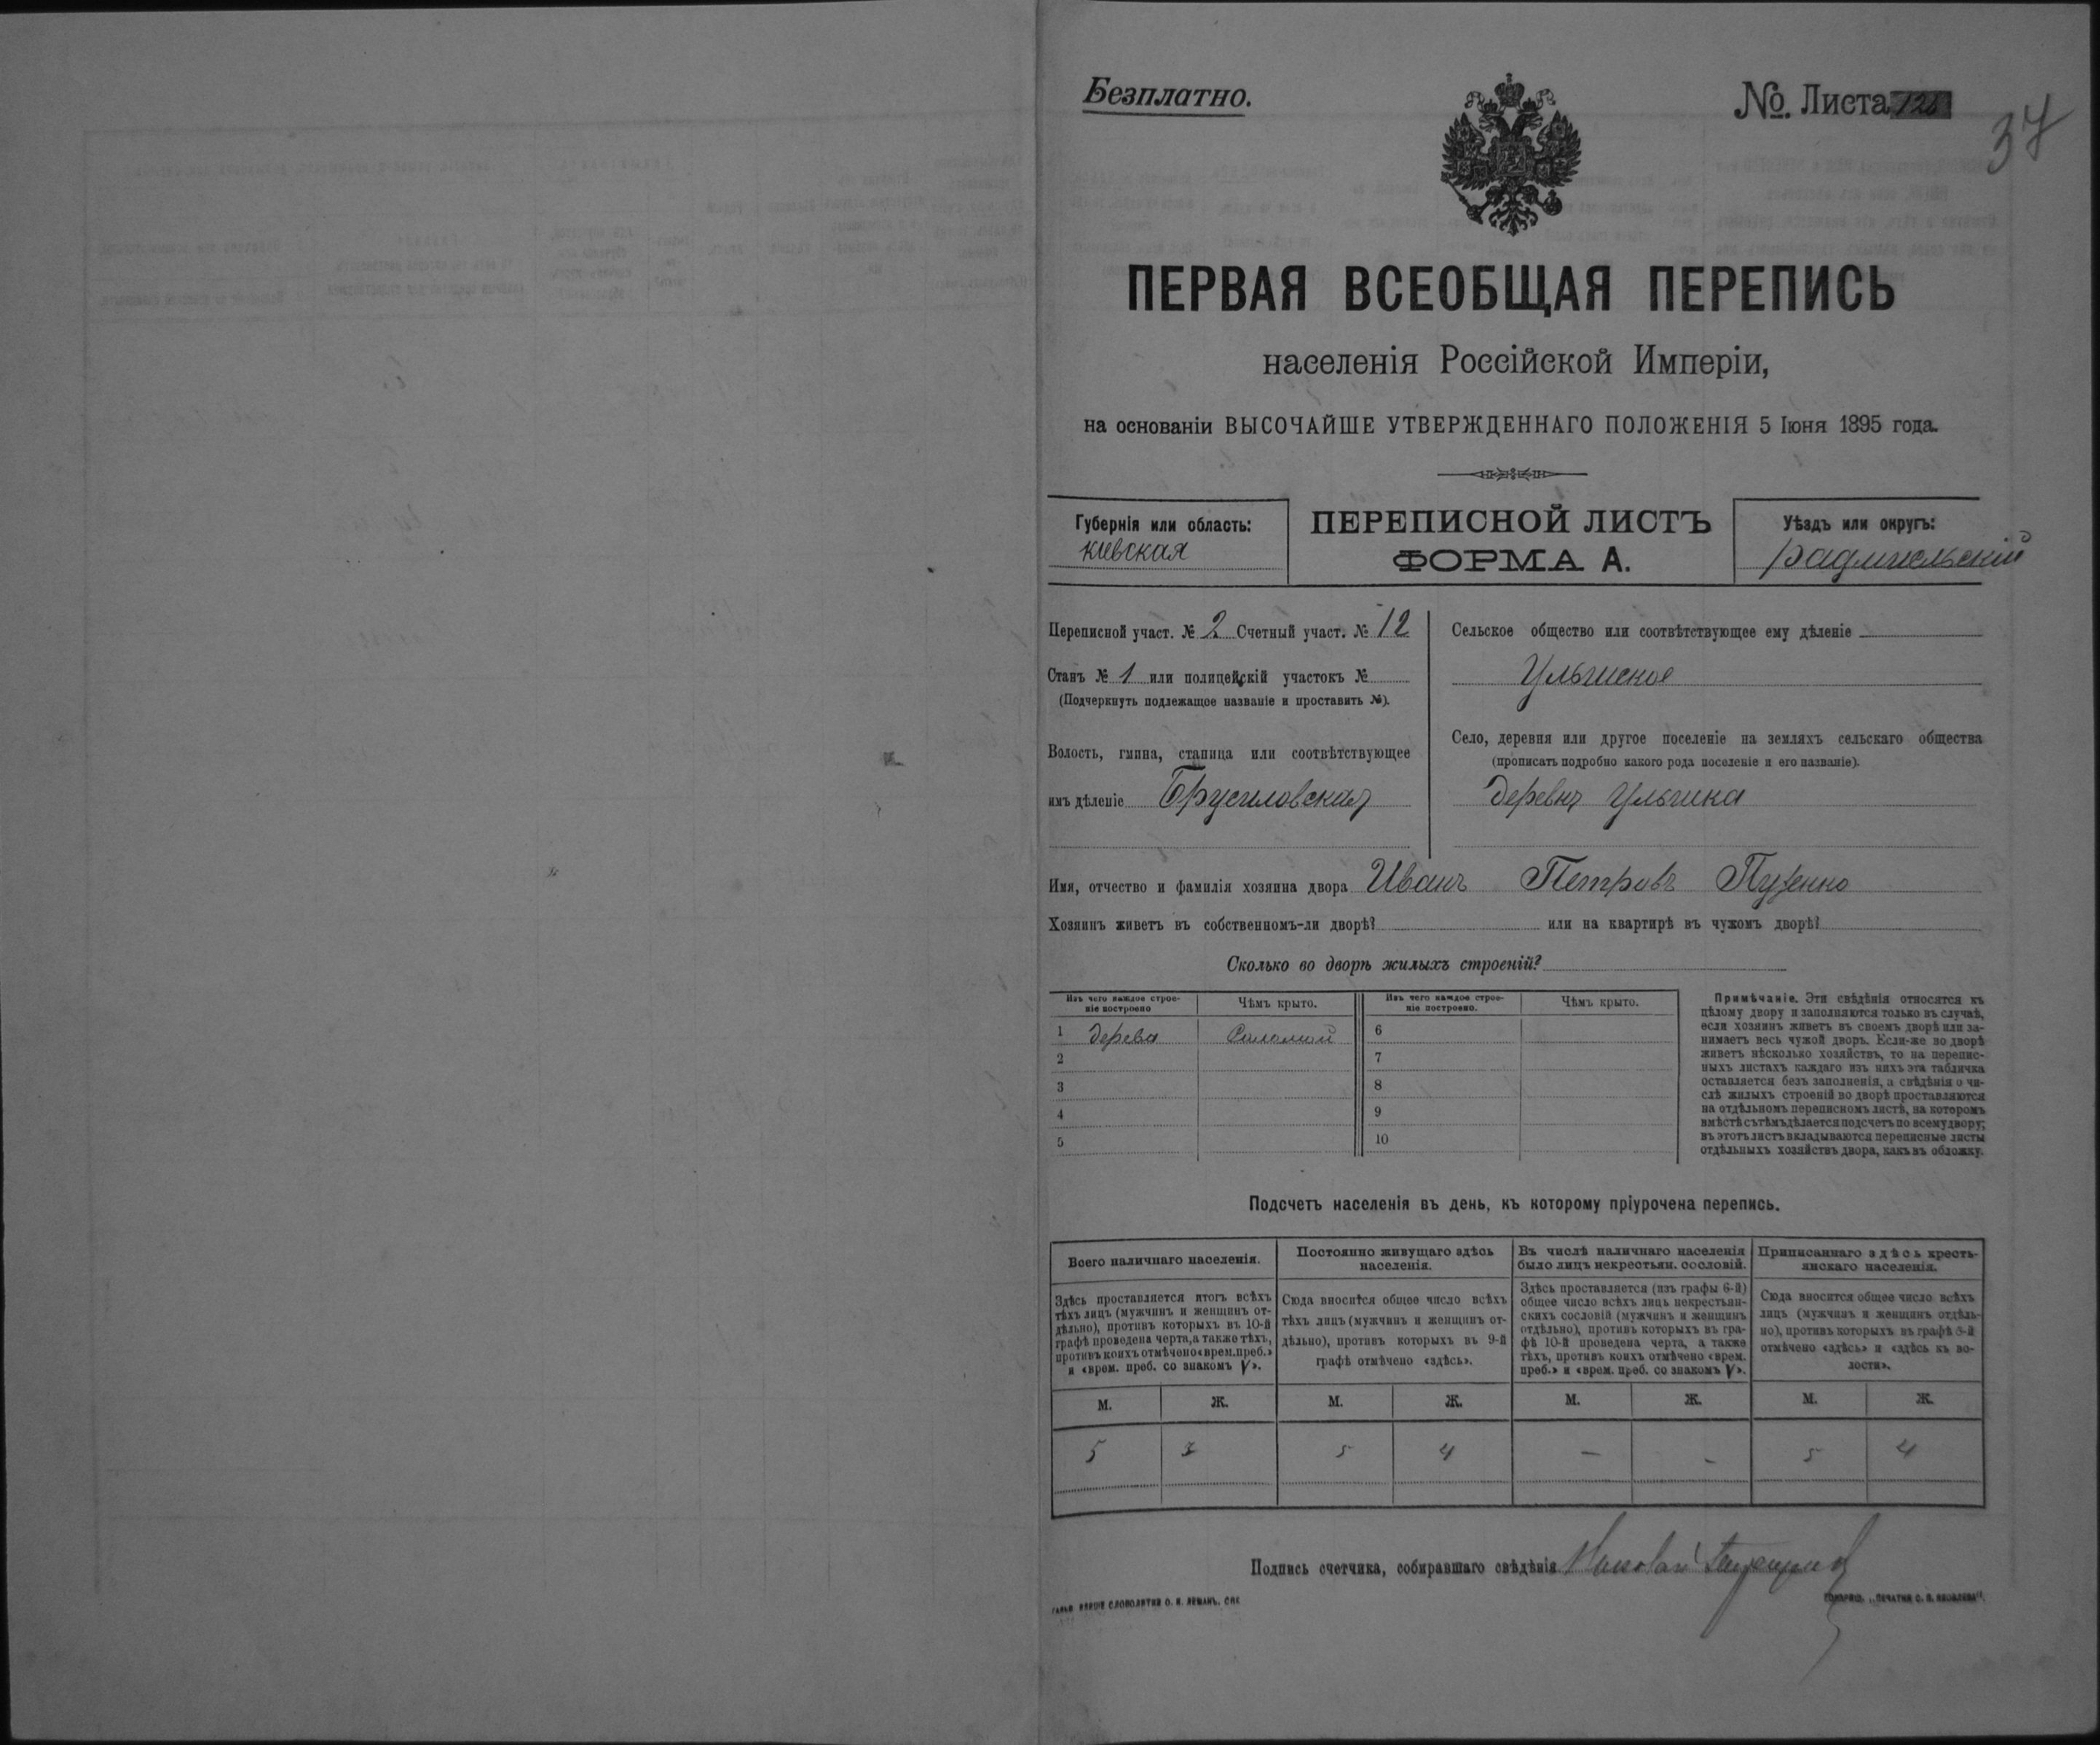 Безплатно.
№. Листа 128
37
ПЕРВАЯ ВСЕОБЩАЯ ПЕРЕПИСЬ
населенія Россійской Имперіи,
на основаніи ВЫСОЧАЙШЕ УТВЕРЖДЕННАГО ПОЛОЖЕНІЯ 5 Іюня 1895 года.
Губернія или область:
киевская
ПЕРЕПИСНОЙ ЛИСТЪ
ФОРМА А.
Уѣздъ или округъ:
радмисльскій
Переписной участ. № 2 Счетный участ. № 12
Станъ № 1 или полицейскій участокъ №
(Подчеркнуть подлежащое названіе и проставить №).
Волость, гмина, станица или соотвѣтствующее
имъ дѣленіе Брусиловская
Сельское общество или соотвѣтствующее ему дѣленіе
Ульшское
Село, деревня или другое поселеніе на земляхъ сельскаго общества
(прописать подробно какого рода поселеніе и его названіе).
деревня Ульшка
Имя, отчество и фамилія хозяина двора Иванъ Петровъ Пузенко
Хозяинъ живетъ въ собственномъ-ли дворѣ? или на квартирѣ въ чужомъ дворѣ?
Сколько во дворѣ жилыхъ строеній?
Изъ чего каждое строе-
ніе построено
Чѣмъ крыто.
Изъ чего каждое строе-
ніе построено.
Чѣмъ крыто.
1 дерева Соломой 6
2 7
3 8
4 9
5 10
Примѣчаніе. Эти свѣдѣнія относятся къ
цѣлому двору и заполняются только въ случаѣ,
если хозяинъ живетъ въ своемъ дворѣ или за-
нимаетъ весь чужой дворъ. Если-же во дворѣ
живетъ нѣсколько хозяйствъ, то на перепис-
ныхъ листахъ каждаго изъ нихъ эта табличка
оставляется безъ заполненія, а свѣдѣнія о чи-
слѣ жилыхъ строеній во дворѣ проставляются
на отдѣльномъ переписномъ листѣ, на которомъ
вмѣстѣ съ тѣмъ дѣлается подсчетъ по всему двору;
въ этотъ листъ вкладываются переписные листы
отдѣльныхъ хозяйствъ двора, какъ въ обложку.
Подсчетъ населенія въ день, къ которому пріурочена перепись.
Всего наличнаго населенія.
Здѣсь проставляется итогъ всѣхъ
тѣхъ лицъ (мужчинъ и женщинъ от-
дѣльно), противъ которыхъ въ 10-й
графѣ проведена черта, а также тѣхъ,
противъ коихъ отмѣчено «врем. преб.»
и «врем. преб. со знакомъ V».
Постоянно живущаго здѣсь
населенія.
Сюда вносится общее число всѣхъ
тѣхъ лицъ (мужчинъ и женщинъ от-
дѣльно), противъ которыхъ въ 9-й
графѣ отмѣчено «здѣсь».
Въ числѣ наличнаго населенія
было лицъ некрестьян. сословій.
Здѣсь проставляется (изъ графы 6-й)
общее число всѣхъ лицъ некрестьян-
скихъ сословій (мужчинъ и женщинъ
отдѣльно), противъ которыхъ въ гра-
фѣ 10-й проведена черта, а также
тѣхъ, противъ коихъ отмѣчено «врем.
преб.» и «врем. преб. со знакомъ V».
Приписаннаго здѣсь кресть-
янскаго населенія.
Сюда вносится общее число всѣхъ
лицъ (мужчинъ и женщинъ отдѣль-
но), противъ которыхъ въ графѣ 8-й
отмѣчено «здѣсь» и «здѣсь къ во-
лости».
М. Ж. М. Ж. М. Ж. М. Ж.
5 5 4 — - 5 4
Подпись счетчика, собиравшаго свѣдѣнія Николай
СЛОВОЛИТНИ О. И. ЛЕМАНЪ, СПБ.
ТОВАРИЩ. „ПЕЧАТНЯ С. П. ЯКОВЛЕВА".